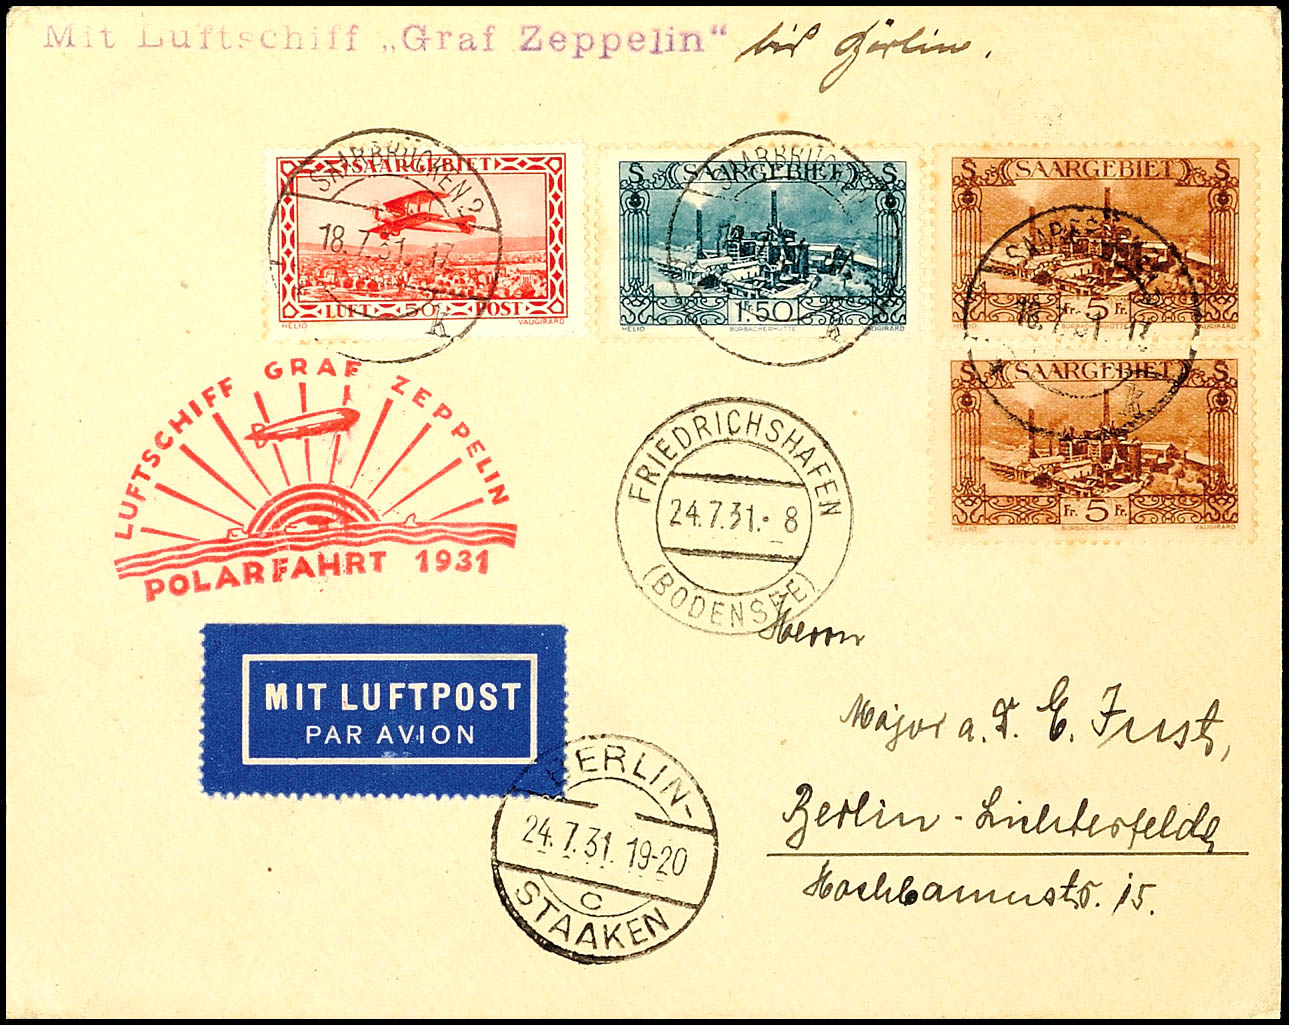 Mit Luftschiff „Graf Zeppelin“ bis Berlin.
SAARBRÜCKEN 2
18.7.31.17
k
SAARGEBIET
LUFT 50 POST
HELIO VAUGIRARD
S SAARGEBIET S
1 Fr. 50
HELIO BURBACHERHÜTTE VAUGIRARD
SAARBRÜCKEN
k
S SAARGEBIET S
Fr. 5 Fr.
HELIO BURBACHERHÜTTE VAUGIRARD
SAARBRÜCKEN
18.7.31.17
S SAARGEBIET S
Fr. 5 Fr.
HELIO BURBACHERHÜTTE VAUGIRARD
LUFTSCHIFF GRAF ZEPPELIN
POLARFAHRT 1931
FRIEDRICHSHAFEN
24.7.31.-8
(BODENSEE)
MIT LUFTPOST
PAR AVION
BERLIN-
24.7.31. 19-20
C
STAAKEN
Herrn
Major a. D. E. Just,
Berlin-Lichterfelde
15.